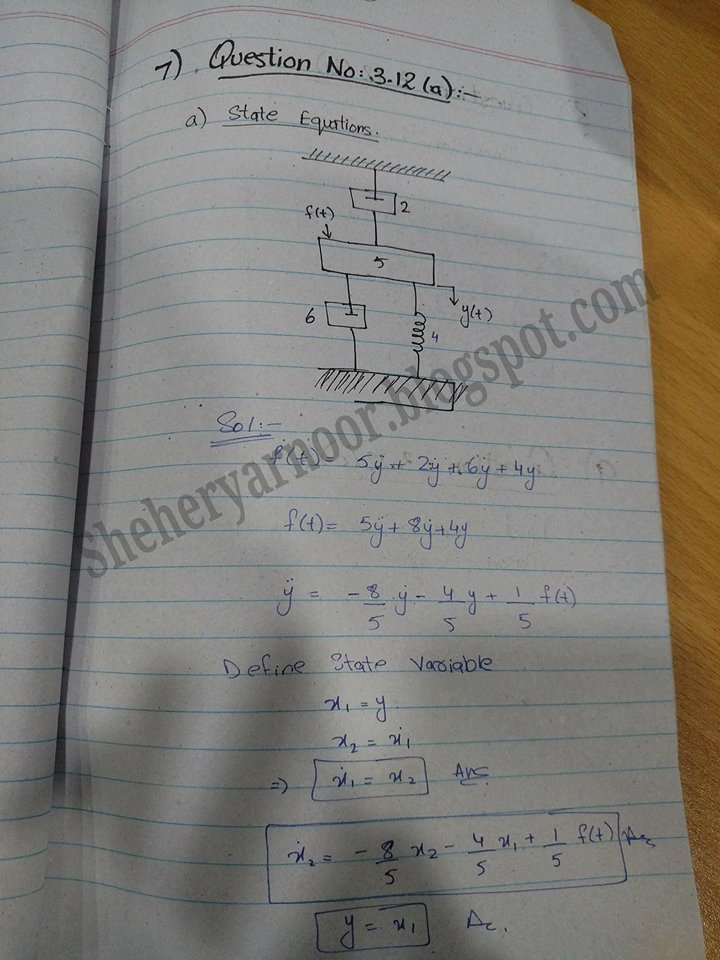 7) Question No: 3.12 (a):-
a) State Equations.
2
f(t)
5
y(t)
6
4
Sol:-
f(t) = 5ÿ + 2ẏ + 6ẏ + 4y
f(t) = 5ÿ + 8ẏ + 4y
ÿ = -8/5 ẏ - 4/5 y + 1/5 f(t)
Define State Variable
x₁ = y
x₂ = ẋ₁
=> ẋ₁ = x₂ Ans
ẋ₂ = -8/5 x₂ - 4/5 x₁ + 1/5 f(t)
y = x₁
Sheheryarnoor.blogspot.com